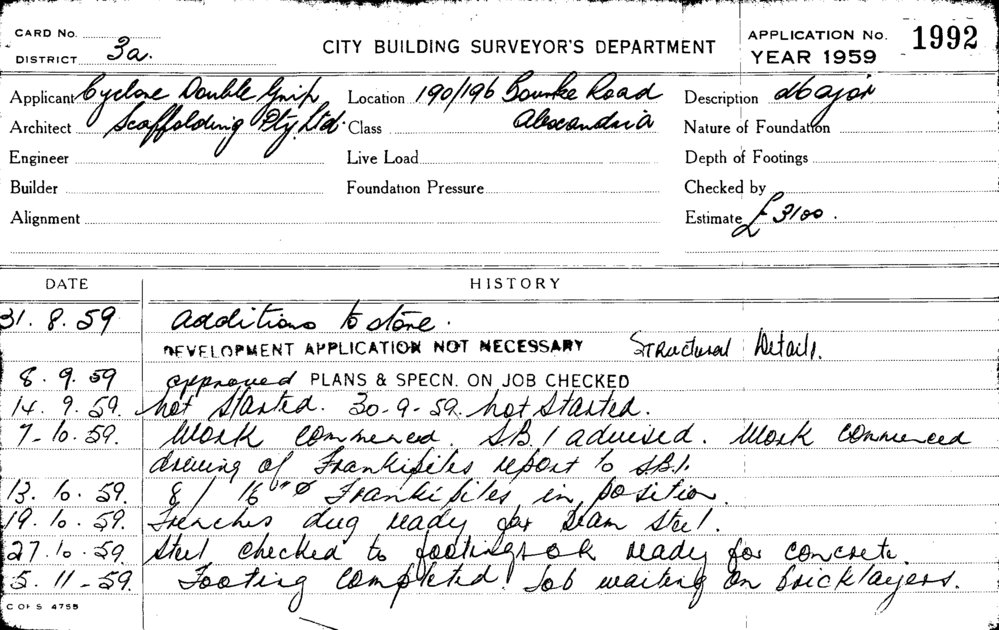 CARD No.
DISTRICT 3a.
CITY BUILDING SURVEYOR'S DEPARTMENT
APPLICATION No. 1992
YEAR 1959
Applicant Cyclone Double Grip Location 190/196 Bourke Road Description Major
Architect Scaffolding Pty Ltd. Class Alexandria Nature of Foundation
Engineer Live Load Depth of Footings
Builder Foundation Pressure Checked by
Alignment Estimate £3100.
DATE HISTORY
31. 8. 59 additions to store.
DEVELOPMENT APPLICATION NOT NECESSARY Structural Details.
8. 9. 59 approved PLANS & SPECN. ON JOB CHECKED
14. 9. 59. not Started. 30-9-59. not Started.
7-10.59. Work commenced. S.B.1 advised. Work commenced
driving of Frankipiles report to S.B.1.
13. 10. 59. 8 / 16" ø Frankipiles in position.
19. 10. 59. Trenches dug ready for beam steel.
27.10.59 Steel checked to footings O.K ready for concrete
5. 11-59. Footing completed. Job waiting on bricklayers.
C OF S 4755